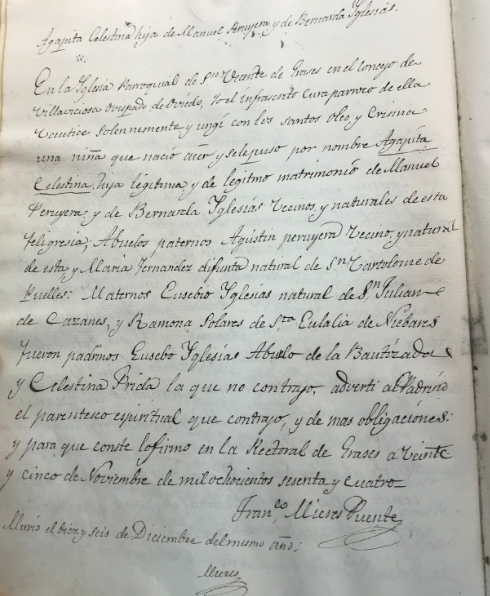 Agapita Celestina hija de Manuel Peruyera y de Bernarda Yglesias.
En la Yglesia Parroquial de Sn. Vicente de Grases en el concejo de
Villaviciosa Ovispado de Oviedo, Yo el infrascrito Cura parroco de ella
Vautice solennemente y ungi con los santos oleo, y Crisma
una niña que nació ayer y se le puso por nombre Agapita
Celestina, hija legitima; y de legitmo matrimonio de Manuel
Peruyera; y de Bernarda Yglesias Vecinos, y naturales de esta
feligresia; Abuelos paternos Agustin peruyera Vecino, y natural
de esta y Maria Fernandez difunta natural de Sn. Bartolome de
Puelles: Maternos Eusebio Yglesias natural de Sn. Julian
de Cazanes, y Ramona Solares de Sta. Eulalia de Niébares
fueron padrinos Eusebo Yglesias Abuelo de la Bautizada
y Celestina Prida la que no contrajo, adverti al Padrino
el parentesco espiritual que contrajo, y de mas obligaciones:
y para que conste lo firmo en la Rectoral de Grases a Veinte
y cinco de Noviembre de mil ochocientos sesenta y cuatro
Franco. Mieres Puente
Murió el diez y seis de Diciembre del mismo año:
Mieres